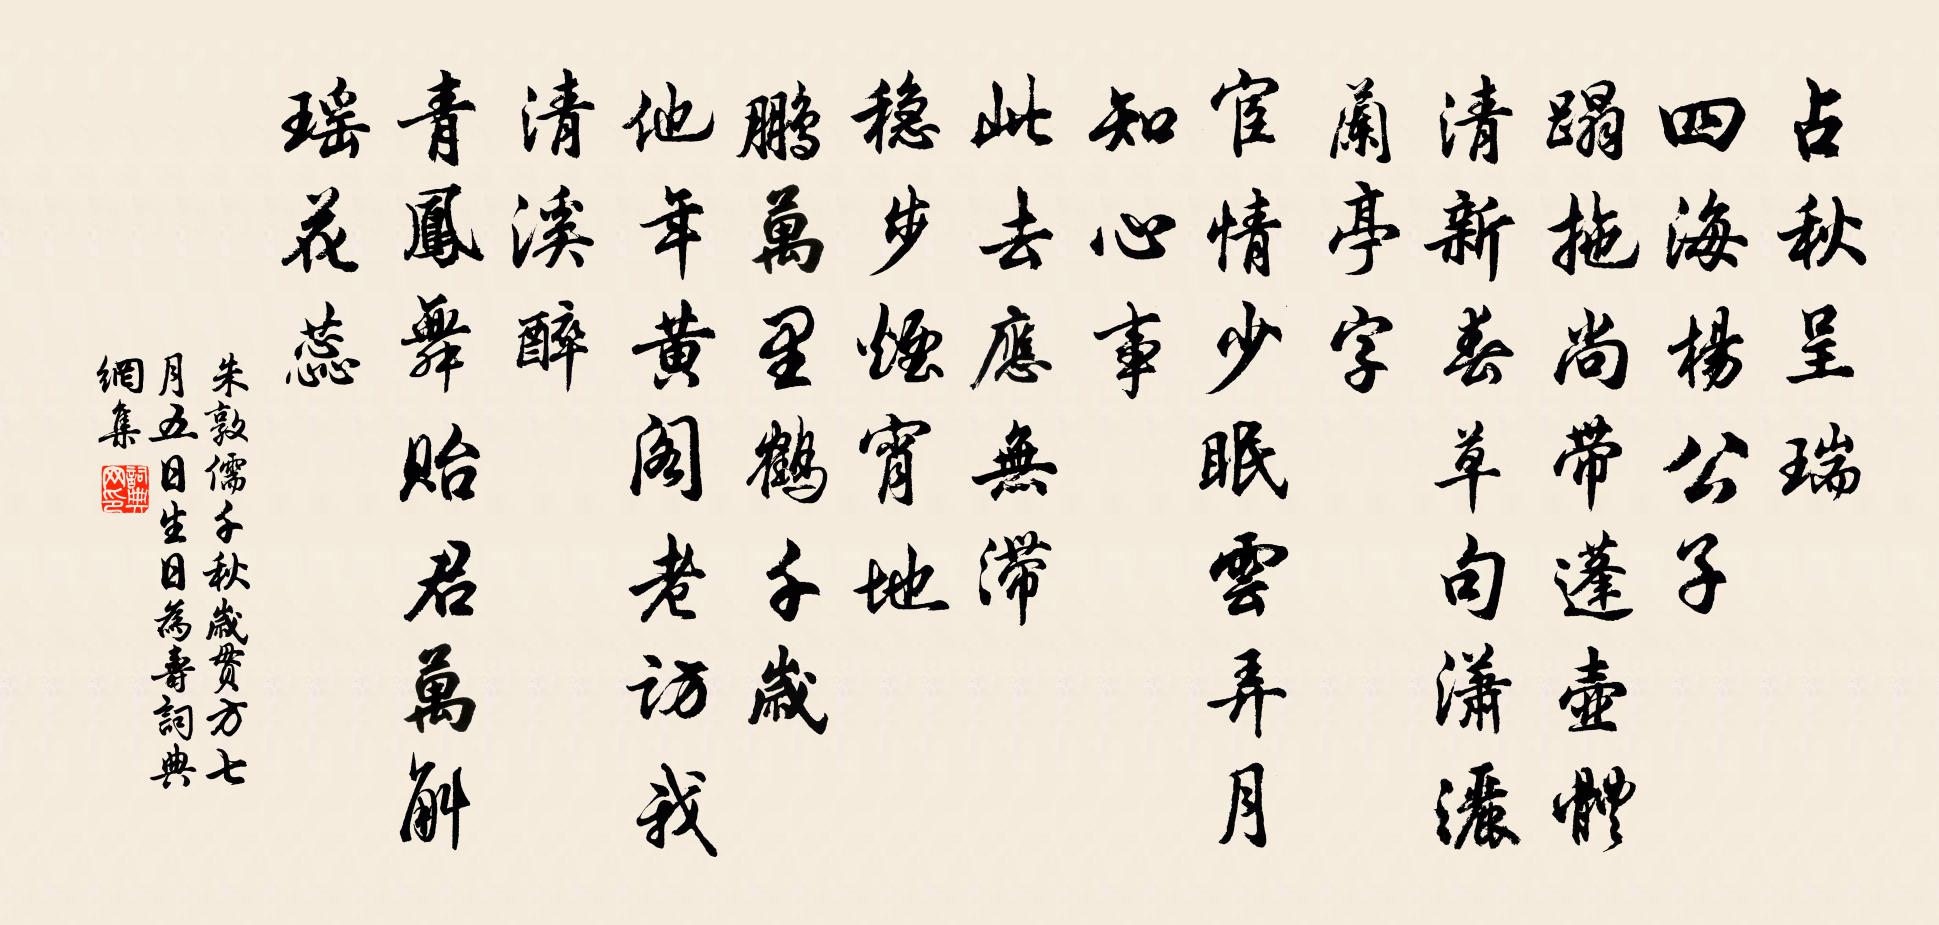 占秋呈瑞
四海楊公子
蹋拖尚带蓬壺體
清新春草句瀟灑
蘭亭字
宦情少眠雲弄月
知心事
此去應無滯
稳步煙宵地
鵬萬里鶴千歲
他年黄阁老访我
清溪醉
青鳳舞贻君萬斛
瑶花蕊
朱敦儒千秋歲贯方七
月五日生日為壽詞典
網集
詞典網印